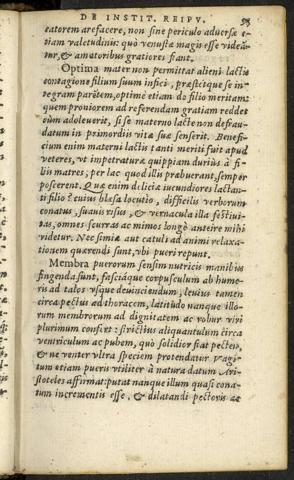 DE INSTIT. REIPV. 93
eatorem arefacere, non sine periculo aduersæ e-
tiam valetudinis: quò venustæ magis esse videã-
tur, & amatoribus gratiores fiant.
Optima mater non permittat alieni lactis
contagione filium suum infici, præscipue se in-
tegram parẽtem, optimè etiam de filio meritam:
quem proniorem ad referendam gratiam reddet
cùm adoleuerit, si se materno lacte non defrau-
datum in primordiis vitæ suæ senserit. Benefi-
cium enim materni lactis tanti meriti fuit apud
veteres, vt impetraturæ quippiam durius à fi-
liis matres, per lac quod illis præbuerant, semper
poscerent. Quæ enim deliciæ iucundiores lactan-
ti filio? cuius blæsa locutio, difficilis verborum
conatus, suauis risus, & vernacula illa festiui-
tas, omnes scurras ac mimos longè anteire mihi
videtur. Nec simiæ aut catuli ad animi relaxa-
tionem quærendi sunt, vbi pueri repunt.
Membra puerorum sensim nutricis manibus
fingenda sunt, fasciáque corpusculum ab hume-
ris ad talos vsque deuinciendum, leuius tamen
circa pectus ad thoracem, latitudo nanque illo-
rum membrorum ad dignitatem ac robur viri
plurimum confert: strictius aliquantulum circa
ventriculum ac pubem, quò solidior fiat pecten,
& ne venter vltra speciem protendatur. Vagi-
tum etiam pueris vtiliter à natura datum Ari-
stoteles affirmat: putat nanque illum quasi cona-
tum incrementis esse, & dilatandi pectoris ac